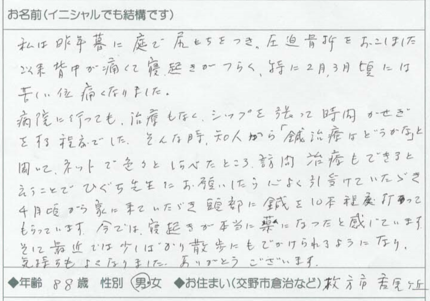 お名前(イニシャルでも結構です)
私は昨年暮に庭で尻もちをつき、圧迫骨折をおこしました
以来背中が痛くて寝起きがつらく、特に2月,3月頃には
長い位痛くなりました。
病院に行っても、治療もなく、シップを張って時間かせぎ
を待程度でした。そんな時、知人から「鍼治療はどうかな」と
聞いて、ネットで色々としらべたところ訪問治療もできると
云うことでひぐち先生にお願いしたら心よく引受けていただき
4月頃から家に来ていただき頭部に鍼を10本程度打って
もらっています。今では、寝起きが本当に楽になったと感じています
そして最近では少しばかり散歩にもでかけられるようになり、
気持ちもよくなりました。ありがとうございます。
◆年齢 88歳 性別 男・女 ◆お住まい(交野市倉治など) 枚方市